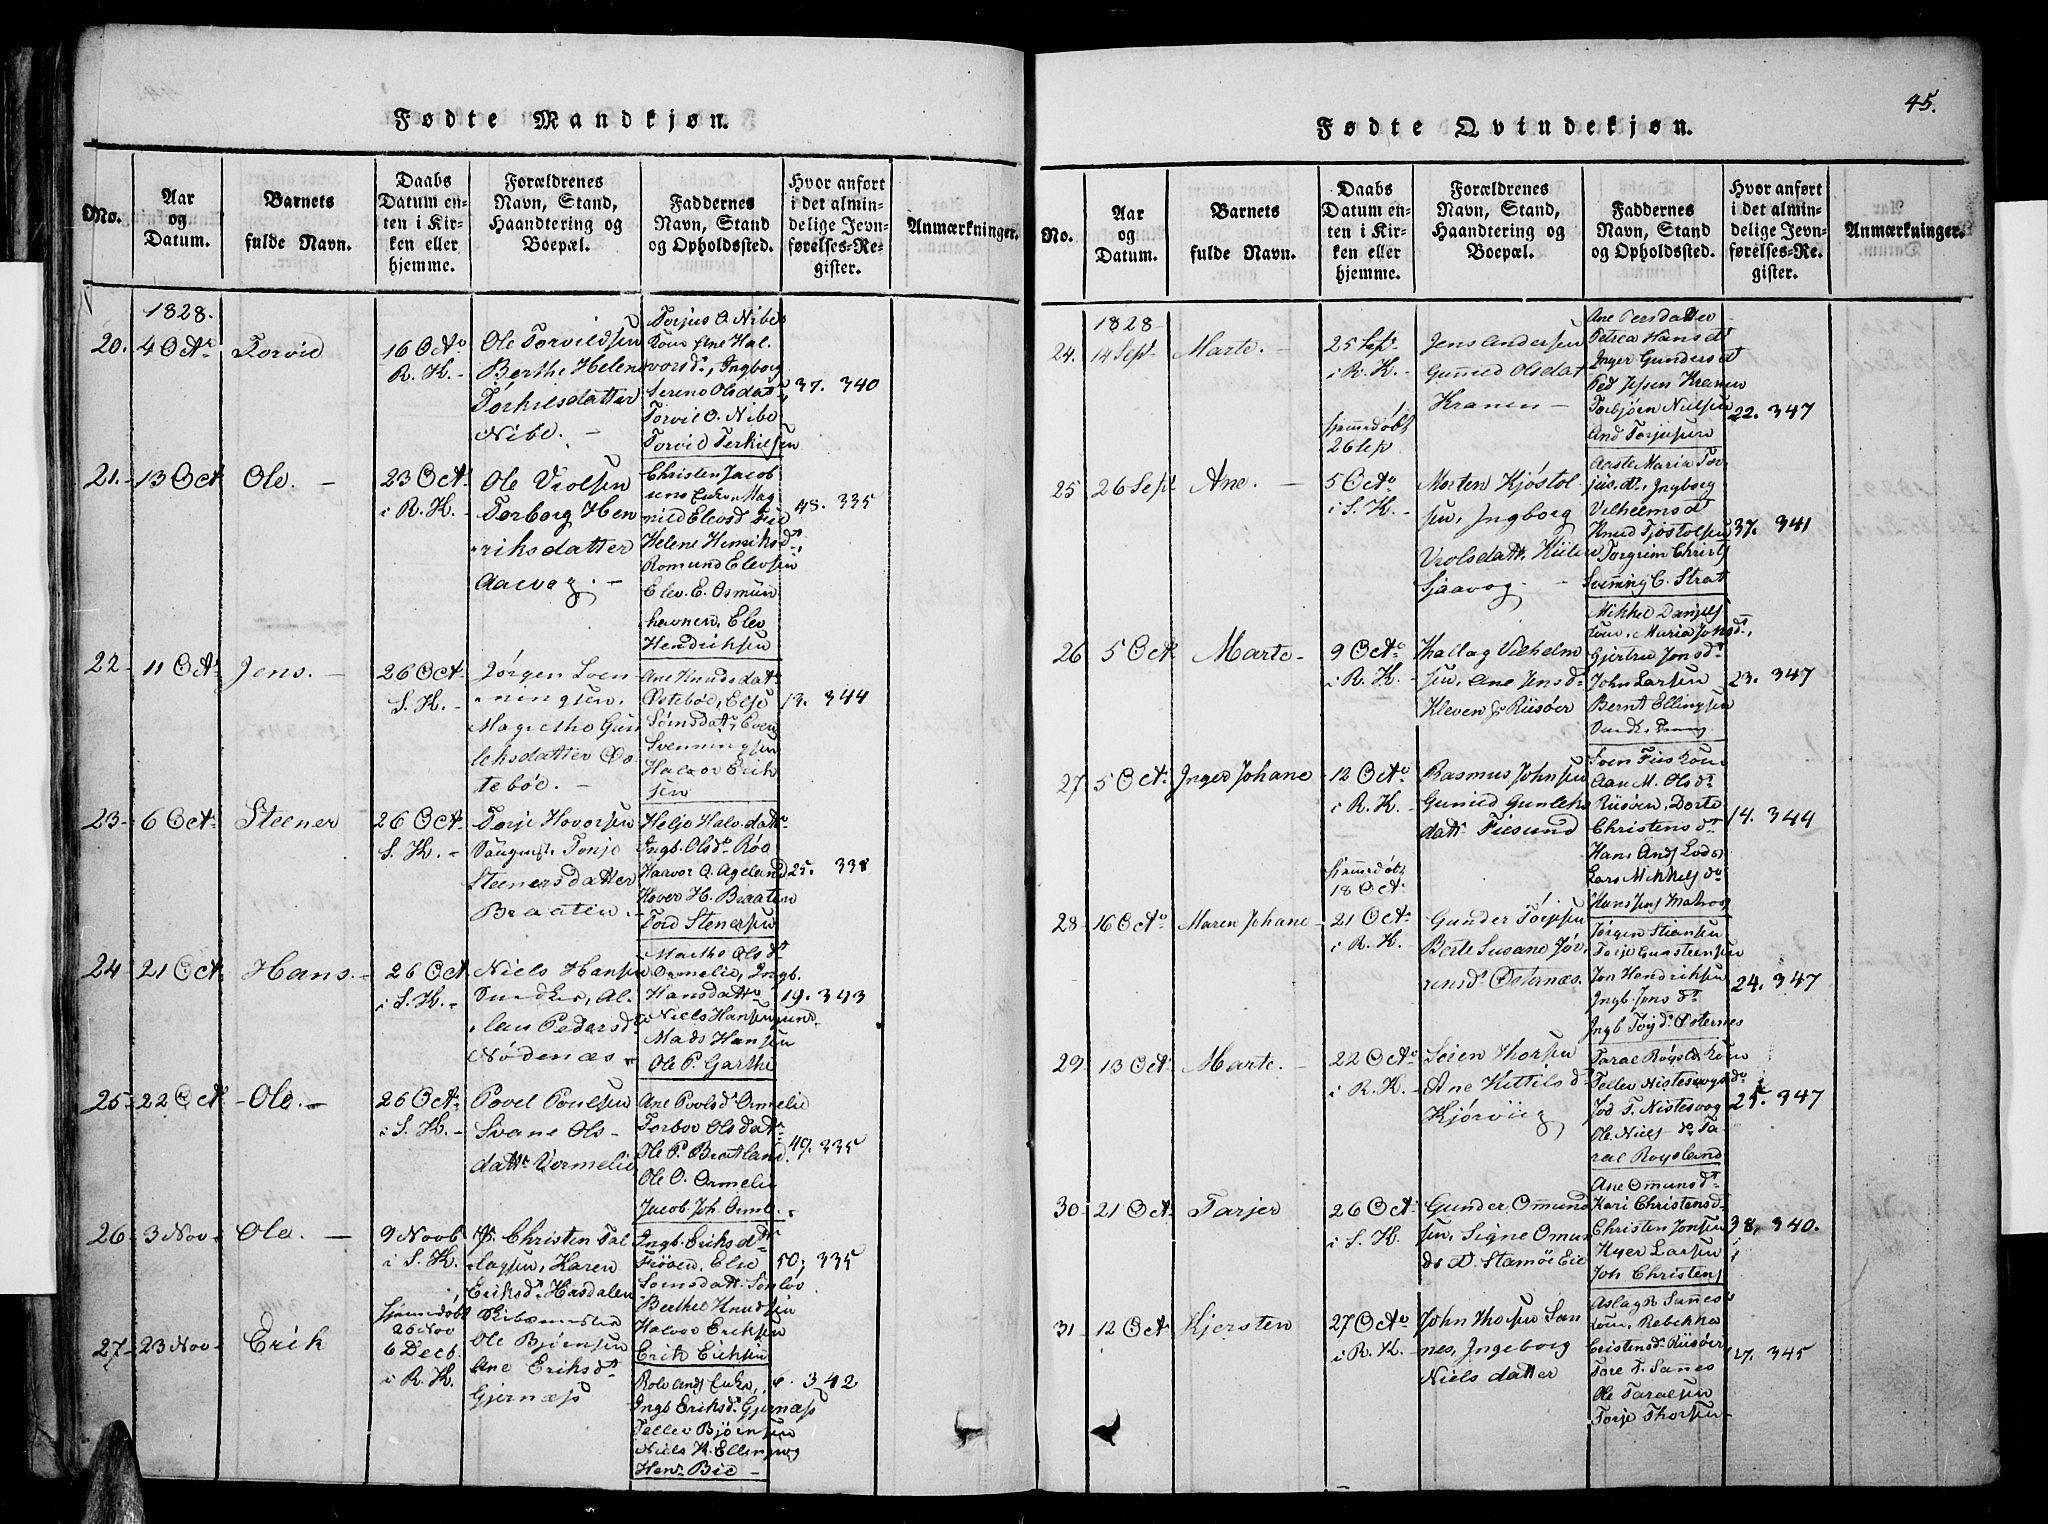 45.
Fødte Mandkjøn.
No.
Aar og Datum.
Barnets fulde Navn.
Daabs Datum enten i Kirken eller hjemme.
Forældrenes Navn, Stand, Haandtering og Boepæl.
Faddernes Navn, Stand og Opholdssted.
Hvor anført i det almindelige Jevnførelses-Register.
Anmærkninger.
1828.
20. 4 Octr Torvid
16 Octo
R. K. -
Ole Torvildsen
Berthe Helene
Torkilsdatter
Nibe. -
Torjus O Nibes
Kone Ane Hal
vorsdr, Ingborg
Serene Olsdatr
Torvil O. Nibe
Torvid Terkilsen
37. 340
21. - 13 Oct Ole. -
23 Oct.
i R. K. -
Ole Violsen
Torborg Hen
riksdatter
Aaevog. -
Christen Jacob
sens Enke, Mag
nild Elevsd
Helene Henriksd
Romund Elevsen
Elev. E. Osmun
havnen, Elev
Hendriksen
48. 335
22 - 11 Octr Jens. -
26 Oct.
S. K. -
Jørgen Sven
ningsen,
Magrethe Gun
leksdatter Øs
tebøe. -
Ane Knudsdatr
Østebøe, Else
Sørnsdatr, Even
Svenningsen
Halvor Erik
sen
13. 344
23 - 6 Octr Steener
26 Oct.
S. K. -
Torje Hovorsen
Tonje
Steenersdatter
Braaten. -
Helje Halv.datr
Ingb. Olsdr Roe
Haavor O. Ageland
Hover H. Braaten
Tord Stenersen
25. 338
24 - 21 Oct. Hans. -
26 Oct.
i S. K. -
Niels Hansen
Al.
lau Pedersd
Nødenæs
Marthe Olsdr
Ormelie, Ingb.
Hansdattr
Niels Hansen
Mads Hansen
Ole P. Garthe
19. 343
25 - 22 Oct. - Ole. -
26 Oct.
i S. K. -
Povel Poulsen
Svane Ols-
dattr Vormelie
Ane Povlsdr Ormelie
Torbor Olsdatr
Ole P. Bratland
Ole O. Ormelie
Jacob Joh. Orml.
49. 335
26 - 3 Nov - Ole. -
9 Novb
i S. K.
Christen Tal
lagsen, Karen
Eriksdr Hasdalen
Ingb. Eriksdr
Frøven, Else
Sørnsdatr
Berthe Knudsen
Halvor Eriksen
Erik Eriksen
50. 335
27 - 23 Nov - Erik
hjemmedøbt
25 Nov
6 Decb.
i R. K.
Ole Bjørnsen
Ane Eriksdr
Gjernæs
Ingb Eriksdr Gjernæs
Tellev Bjørnsen
Niels K. Ellingvog
Henr Bie -
6. 342
Fødte Qvindekjøn.
No.
Aar og Datum.
Barnets fulde Navn.
Daabs Datum enten i Kirken eller hjemme.
Forældrenes Navn, Stand, Haandtering og Boepæl.
Faddernes Navn, Stand og Opholdssted.
Hvor anført i det almindelige Jevnførelses-Register.
Anmærkninger.
1828
24. 14 Sept. Marte. -
25 Sep.
i R. K. -
Jens Andersen
Gunnild Olsdat
Kranen -
Ane Persdatter
Petrea Hansdr
Inger Gundersd
Ped Jepsen Kranen
Torbjørn Nielsen
And Torjusen
22. 347
25 26 Sept Ane. -
hjemmedøbt
26 Sep
5 Octo
i S. K. -
Morten Kjøstol
sen, Ingborg
Vrolsdattr Kiilen
Sjaavog -
Aaste Maria Tor
jus.dr, Ingborg
Vilhelmsdr
Knud Tjøstolsen
Torgrim Christs
Svenning C. Strat
37. 341
26 5 Oct. Marte -
9 Octo
i R. K. -
Hallag Vilhelm
sen, Ane Jensd
Kleven p Riisøer
Mikkel Daniels
kone, Maria Johsdr,
Gjertru Jonsdr
John Larsen
Bernt Ellingsen
23. 347
27 5 Oct. Inger Johane
12 Octo
i R. K. -
Rasmus Johnsen
Gunild Gunleks
dattr Fiesund
Sven Fies kone
Aan M. Olsdr
Riisøen, Dorte
Christensdr
Hans Ands Lods
Lars Mikkels do
Hans Jens Malvog
14. 344
28 16 Octo Maren Johane -
hjemmedøbt
18 Oct.
21 Octr
i R. K.
Gunder Torjesen
Berte Susane Jør
rensdr Østernæs.
Jørgen Stiansen
Torje Gunsteensen
Jon Hendriksen
Ingb. Jons dr
Ingb Tojdr Østernes
24. 347
29 13 Oct. Marte. -
22 Octo
i R. K. -
Seien Thorsen
Ane Kittilsd
Kjørviig
Taral Røyslds kone
Tellev Nistesvogs do
Jod T. Nistesvog
Ole Niels do Ta-
ral Røysland
25. 347
30 - 21 Oct. Tarjer
26 Oct.
i S. K.
Gunder Omund
sen, Signe Omun
dsd. Stamsøe Eie
Ane Omunsdr
Kari Christensd
Christen Jonsen
Hyer Larsen
Joh Christens
38. 340.
31 - 12 Oct. Kjersten
27 Octo
i R. K. -
John Thorsen San
nes, Ingeborg
Niels datter
Aslag R Sannes
kone, Rebekka
Cristensdr Riisøer
Tore T. Sanes
Ole Taralsen
Torje Thorsen -
17. 345